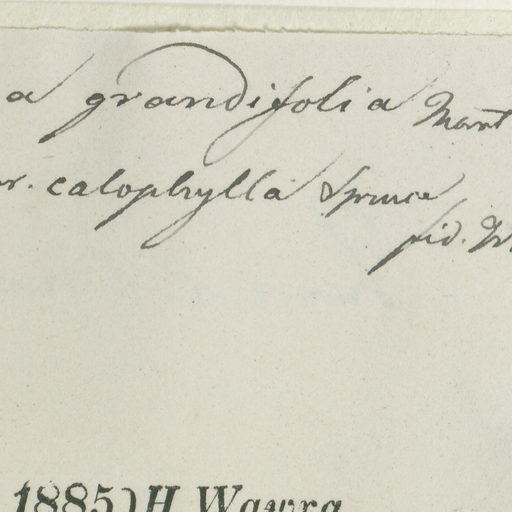 a grandifolia Mart
r. calophylla Spruce
fid.
1885) H. Wawra